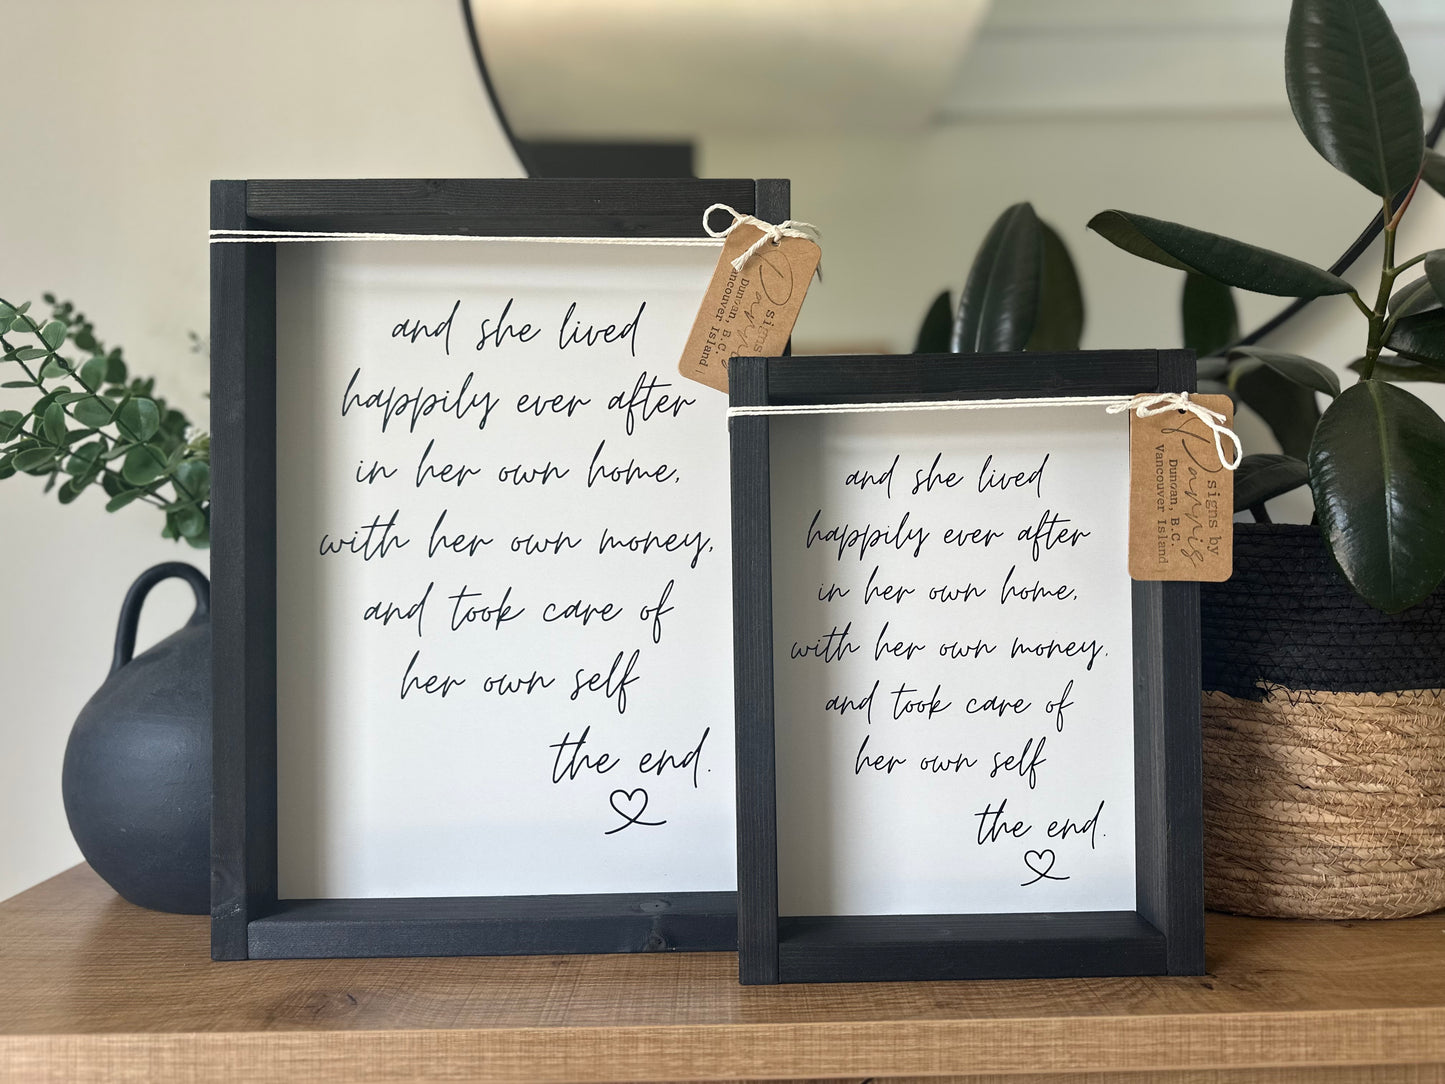 and she lived
happily ever after
in her own home,
with her own money,
and took care of
her own self
the end.
signs by
Parris
Duncan, B.C.
Vancouver Island
and she lived
happily ever after
in her own home,
with her own money,
and took care of
her own self
the end.
signs by
Parris
Duncan, B.C.
Vancouver Island